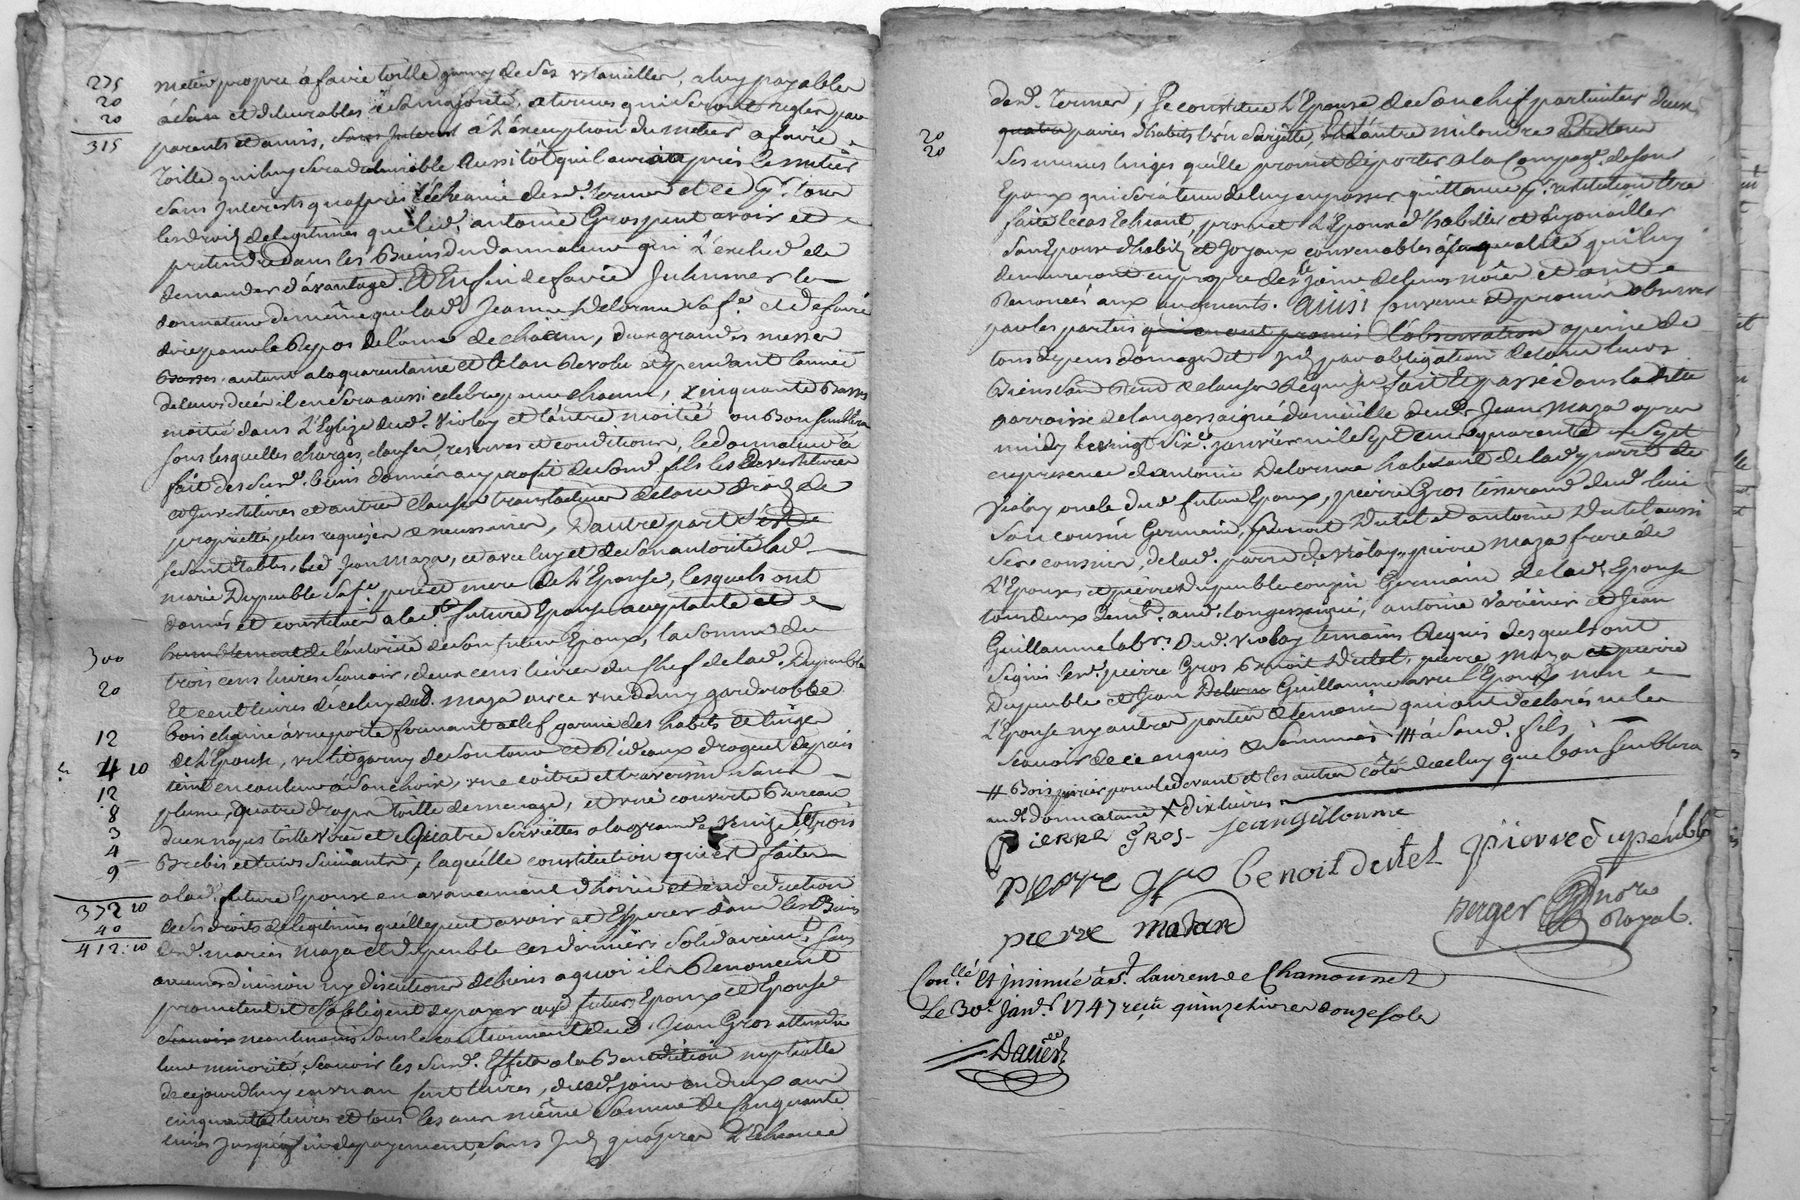 275
20
20
315
métier propre à faire toille garny de ses ustancilles, a luy payables
à Jean et delivrables à sa majorité, a termes qui seront reglés par
parents et amis, sans Interest à l'éxception du métier a faire
toille qui luy sera delivrable aussi tôt qu'il aura apris le métier
sans Interests qu'apres l'écheance desd. termes et ce pr. tous
les droits de legitimes que led. antoine Gros peut avoir et
pretendre dans les Biens du donnateur qui l'exclud de
demander d'avantage. Et Enfin de faire Inhumer le
donnateur de même que lad. Jeanne Delorme sa fe. et de faire
dire pour le Repos de l'âme de chacun, deux grandes messes
Basses. autant a la quarantaine et l'an Revolu et pendant l'année
de leurs décés il en sera aussi celebré pour chacun, cinquante Basses
moitié dans l'Eglise dud. Violay et l'autre moitié ou Bon semblera
sous lesquelles charges, clauses, reserves et conditions, le donnateur a
fait des susd. biens donnés au profit dud. fils les devestitures
et Investitures et autres clauses translatives de tous droits de
proprietté plus requises et necessaires, D'autre part s'est
se sont etablis, led. Jean Maza, et avec luy et de son autorité lad.
marie Dupeuble sa fe. pere et mere de l'Epouse, lesquels ont
donnés et constitués a lad. future Epouse acceptante et
humblement de l'autorité de son futur Epoux, la somme de
300
trois cens livres sçavoir, deux cens livres du chef de lad. Dupeuble
20
Et cent livres de celuy dud. maza avec une demy garderobbe
bois chaine à une porte fermant a clef garnie des habits et linges
12
de l'Epouse, un lit garny de son tour et Rideaux droguet de païs
4 10
teint en couleur à son choix, une coitre et traversin sans
12
plume, quatre draps toille de menage, et une couverte Bureau
8
deux napes toille unie et quatre serviettes a la grande Venize et trois
3
4
Brebis et leurs suivants, laquelle constitution que est faite
9
a lad. future Epouse en avancement d'hoirie et en deduction
372 10
40
412 10
de ses droits de legitimes qu'elle peut avoir et Esperer dans les Biens
desd. mariés Maza et dupeuble ces derniers solidairement, sans
aucune division ny discution de biens a quoi ils Renoncent
promettent et s'obligent de payer aux futurs Epoux et Epouse
sçavoir neanmoins sous le cautionnement dud. Jean Gros attendu
leur minorité, sçavoir les susd. Effets a la Benediction nuptialle
de ce jourdhuy en un an cent livres, dud. jour en deux ans
cinquante livres et tous les ans même somme de cinquante
livres jusqu'a fin de payement, sans Int. qu'apres l'écheance
desd. termes, Se constitue l'Epouse de son chef particulier deux
20
quatre paires d'habits l'un Sargette, et l'autre miloudre et de tous
20
ses menus linges qu'elle promet de porter a la Compagie. de son
Epoux qui sera tenu de luy en passer quittance pr. restitution Etre
faite le cas Echeant, promet l'Epoux d'habiller et d'enjoüailler
son Epouse d'habits et Joyaux convenables à sa qualité qui luy
demeureront en propre des le jour de leurs nôces et ont
Renoncés aux augments. Ainsi Convenu et promis observer
par les parties qui en ont promis l'observation a peine de
tous depens domages et Int. par obligation de tous leurs
Biens avec Rend. et clauses Requises, fait et passé dans la ditte
parroisse de longessaigne domicille dud. Jean Maza apres
midy le vingt six. janvier mil sept cens quarente sept
en presence d'antoine Delorme habitant de lad. parre. de
Violay oncle dud. futur Epoux, pierre Gros tisserand dud. lieu
son cousin Germain, Benoit Dutel et antoine Dutel aussi
ses cousins, de lad. parre. de Violay, pierre Maza frere de
l'Epouse et pierre dupeuble cousin Germain de lad. Epouse
tous deux demt. aud. longessaigne, antoine Varinier et Jean
Guillaume labr. dud. Violay temoins Requis desquels ont
signés lesd. pierre Gros Benoit Dutel, pierre Maza et pierre
Dupeuble et Jean Delorme Guillaume avec l'Epoux non
l'Epouse ny autres parties et temoins qui ont declarés ne le
sçavoir de ce enquis et sommés. ### à Sond. fils
# Bois pour le devant et les autres côtés de celuy que bon semblera
aud. donnataire X dix livres
PiERRE GROS. jean guillaume
pierre gros benoit dutel pierre dupeuble
pierre mazard
Berger nore
Royal.
Con.llé Et jnsinué à St. Laurent de Chamousset
Le 30e. janv. 1747 reçû quinze livres douze sols
Dauier